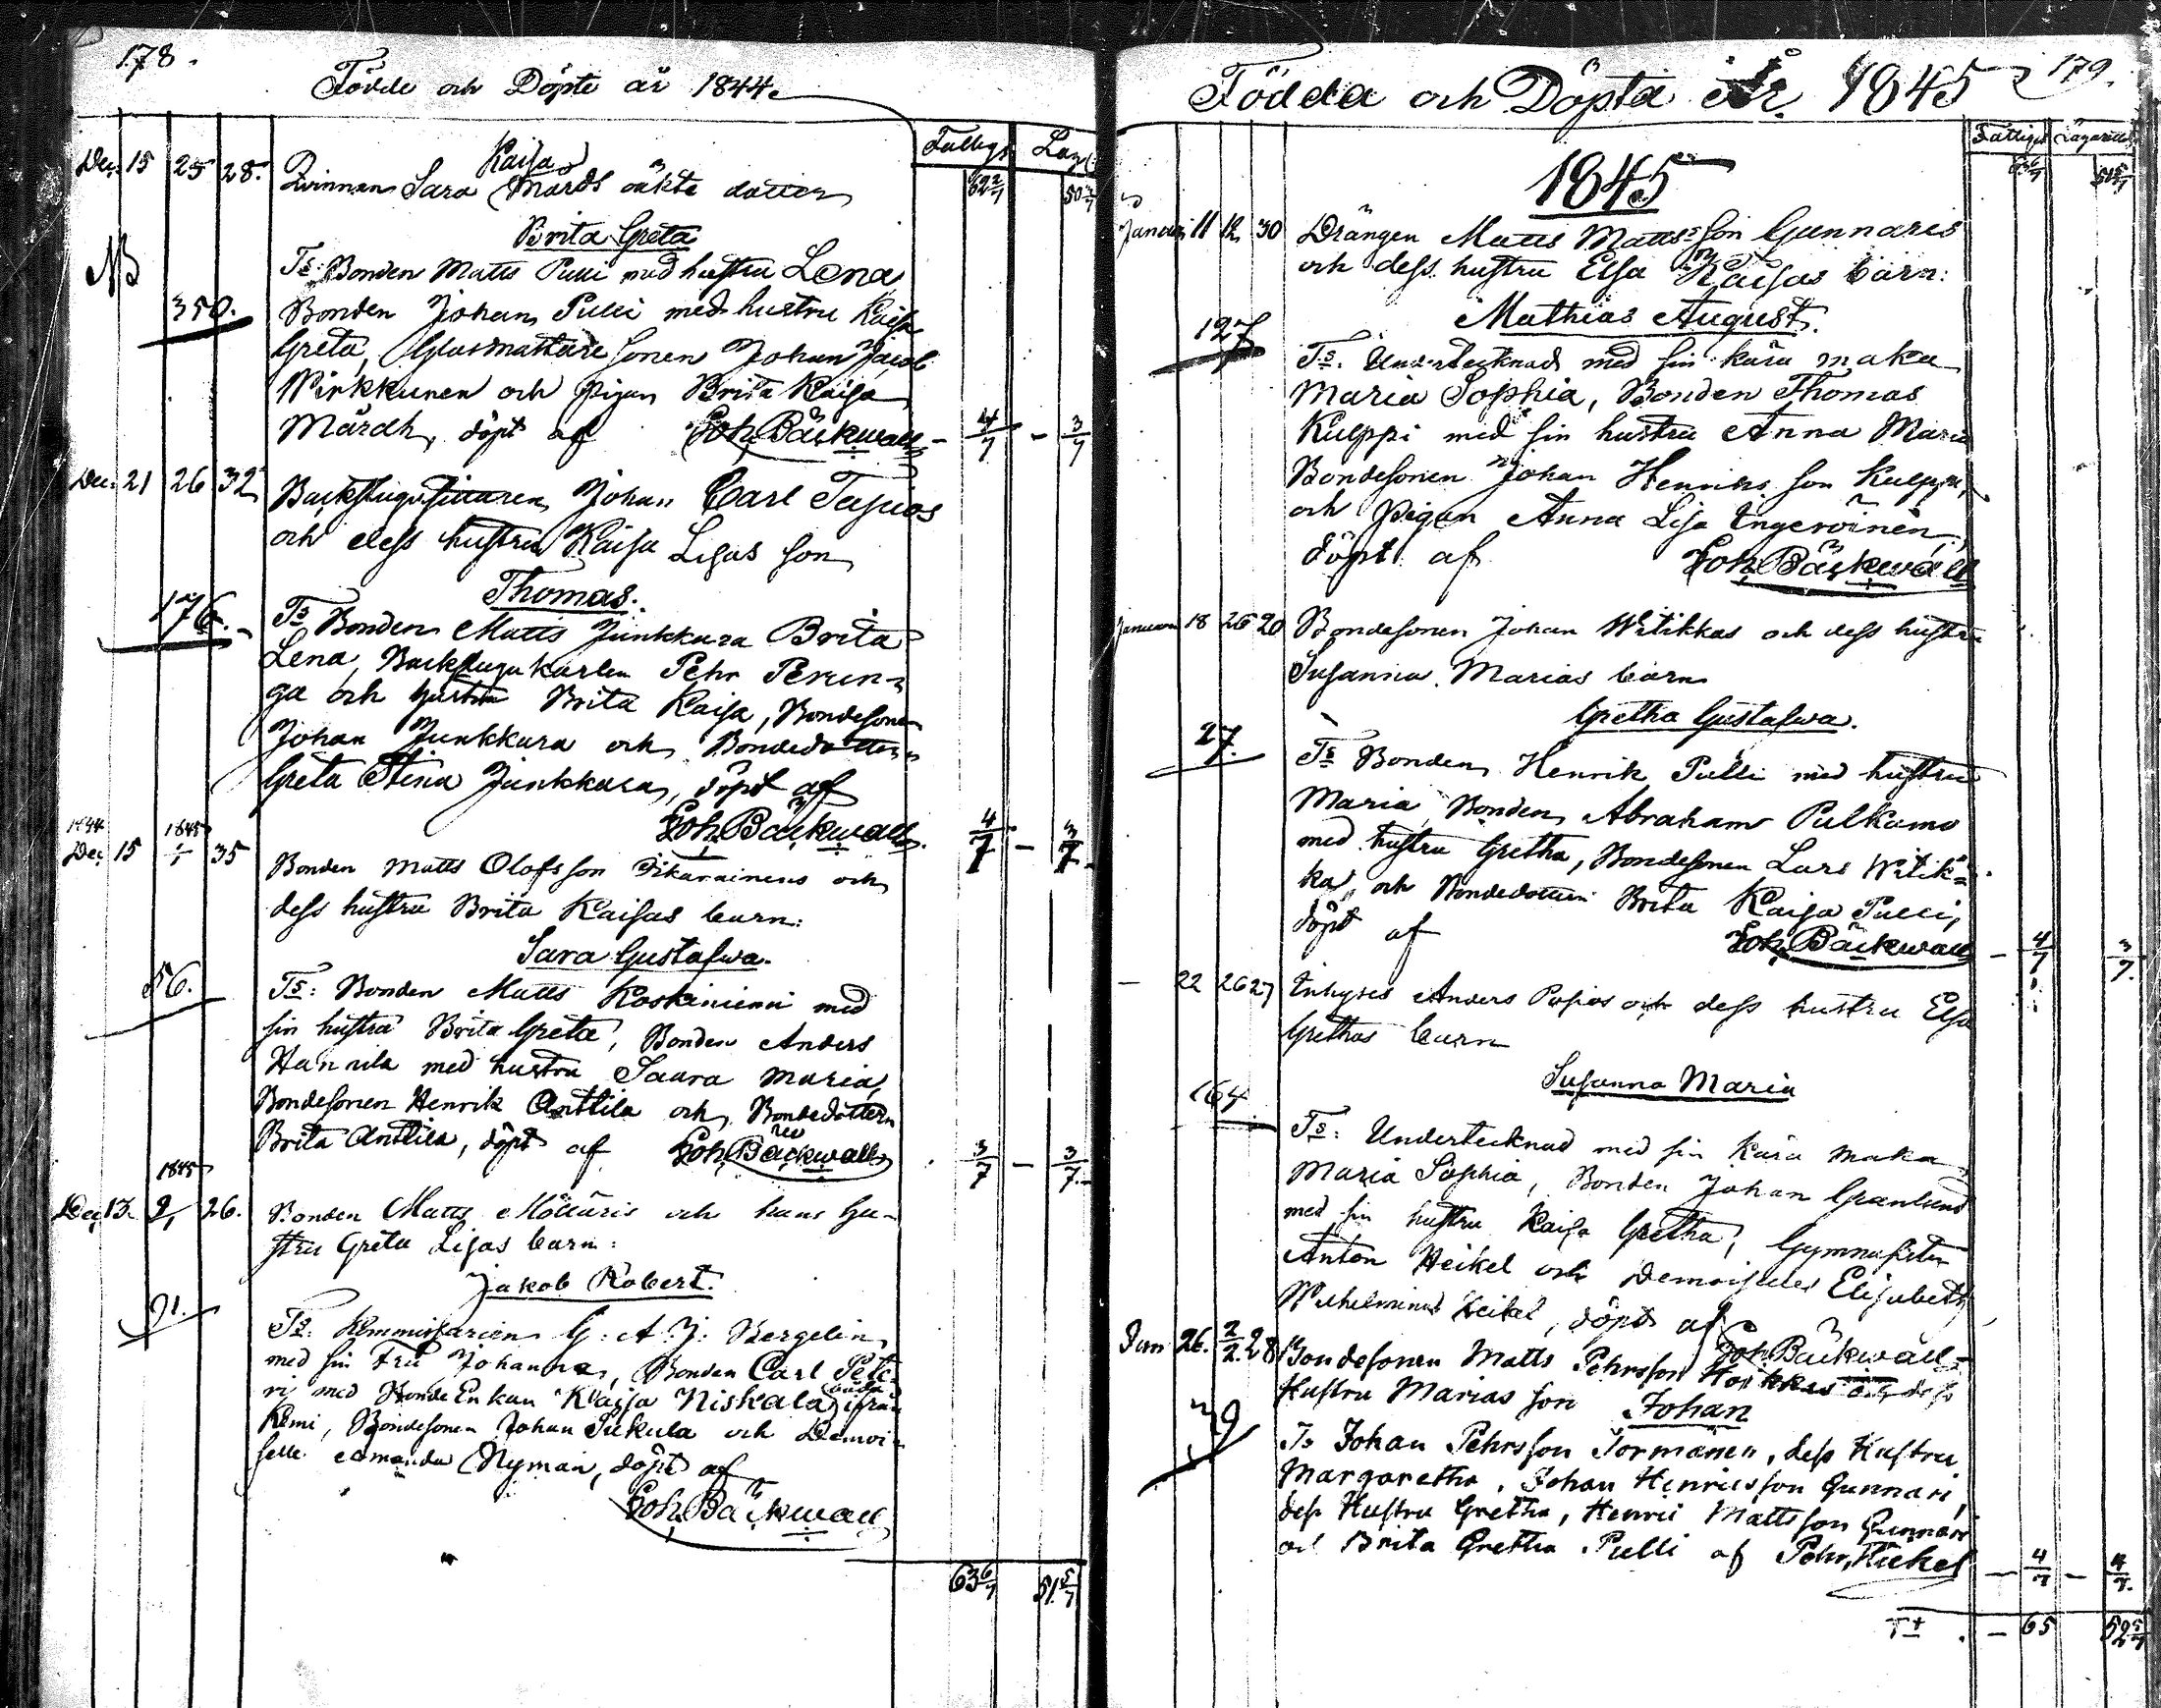 178.
Födde och Döpte år 1844.
Fattigs Laza
62 2/7 50 2/7
Dec. 15 25 28. Qvinnan Sara Kaisa Mårds oäkta dotter
Brita Greta
NB
Ts: Bonden Matts Pulli med hustru Lena
350.
Bonden Johan Pulli med hustru Kaisa
Greta, Glasmästare sonen Johan Jacob
Wirkkunen och pigan Brita Kaisa
Mårdh, döpt af Joh. Bäckwall - 4/7 - 3/7
Dec. 21 26 32 Backstugusittaren Johan Carl Tapios
och dess hustru Kaisa Lisas son
Thomas.
176.
Ts Bonden Matts Junkkara Brita
Lena, Backstugukarlen Pehr Perun-
ga och hustru Brita Kaisa, Bondesonen
Johan Junkkara och Bondedottern
Greta Stina Junkkara, döpt af
Joh. Bäckwall. 4/7 - 3/7
1844 1845
Dec 15 1/1 35
Bonden Matts Olofsson Pikarainens och
dess hustru Brita Kaisas barn:
Sara Gustafwa.
56.
Ts: Bonden Matts Koskiniemi med
sin hustru Brita Greta, Bonden Anders
Hannila med hustru Saara Maria,
Bondesonen Henrik Anttila och Bondedottern
Brita Anttila, döpt af Joh. Bäckwall 3/7 - 3/7
1845
Dec 13 2/1 26. Bonden Matts Möllaris och hans hu-
stru Greta Lisas barn:
Jakob Robert.
91.
Ts: Kommissarien G. A. J. Bergelin
med sin Fru Johanna, Bonden Carl Pete-
ri med Bonde Enkan Kaisa Niskala ifrån
Kemi, Bondesonen Johan Sukula och Demoi-
selle Amanda Nyman, döpt af
Joh. Bäckwall
63 6/7 51 5/7
Födda och Döpta År 1845 179.
Fattigs Lazarett
63 6/7 51 5/7
1845
Januari 11 12 30 Drängen Matts Matts son Gunnaris
och dess hustru Elsa Kaisas barn:
Mathias August.
127
Ts. Undertecknad med sin kära maka
Maria Sophia, Bonden Thomas
Kulppi med sin hustru Anna Maria
Bondesonen Johan Henriks son Kulppi,
och pigan Anna Lisa Ingervinen,
döpt af Joh. Bäckwall
Januari 18 26 20 Bondesonen Johan Witikkas och dess hustru
Susanna Marias barn
Gretha Gustafwa.
27.
Ts Bonden Henrik Pulli med hustru
Maria, Bonden Abraham Pulkamo
med hustru Gretha, Bondesonen Lars Witik-
ka, och Bondedottern Brita Kaisa Pulli,
döpt af Joh. Bäckwall - 4/7 3/7.
- 22 26 27 Inhyses Anders Papios och dess hustru Elsa
Grethas barn
Susanna Maria
164
Ts: Undertecknad med sin kära maka
Maria Sophia, Bonden Johan Granlund
med sin hustru Kaisa Gretha, Gymnasisten
Anton Heikel och Demoiselle Elisabeth
Wilhelmina Heikel, döpt af
Joh. Bäckwall
Jan 26. 2/2. 28 Bondesonen Matts Pehrsson Houkkas och dess
Hustru Marias son Johan
Ts Johan Pehrsson Tormanen, dess Hustru
Margaretha, Johan Henricsson Gunnari,
dess Hustru Gretha, Henric Mattsson Gunnari
och Brita Gretha Pulli af Pehr Heikel - 4/7 - 4/7.
Tt. - 65 52 5/7